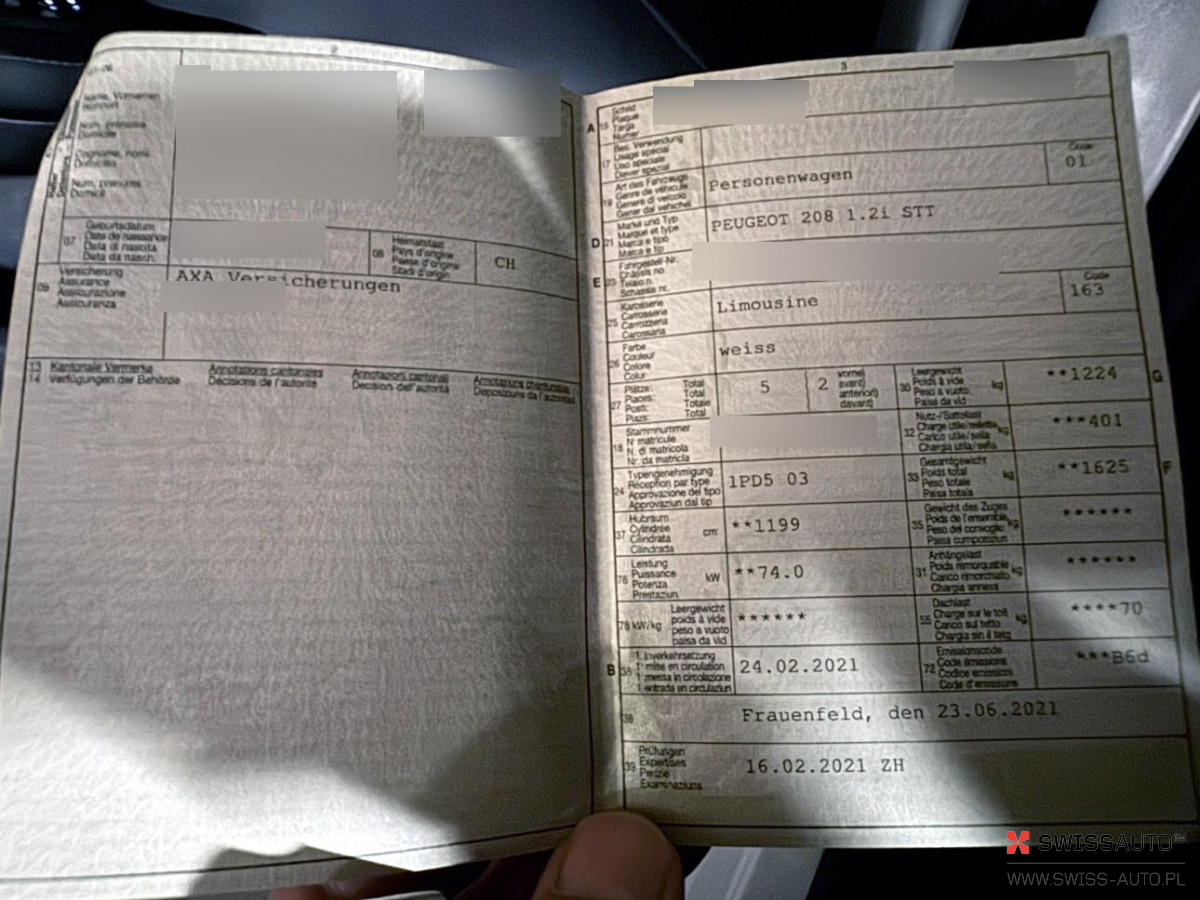 2
Name, Vornamen
Wohnort
Nom, prénoms
Domicile
Cognome, nomi
Domicilio
Num, prenums
Domicil
07
Geburtsdatum
Date de naissance
Data di nascita
Data da nasch.
08
Heimatstaat
Pays d'origine
Paese d'origine
Stadi d'origin
CH
09
Versicherung
Assurance
Assicurazione
Assicuranza
AXA Versicherungen
13 Kantonale Vermerke
14 Verfügungen der Behörde
Annotations cantonales
Décisions de l'autorité
Annotazioni cantonali
Decisioni dell'autorità
Annotaziuns chantunalas
Deposiziuns da l'autoritad
3
A 15
Schild
Plaque
Targa
Numer
17
Bes. Verwendung
Usage spécial
Uso speciale
Diever spezial
19
Art des Fahrzeugs
Genre de véhicule
Genere di veicolo
Gener dal vehichel
Personenwagen
Code
01
D 21
Marke und Typ
Marque et type
Marca e tipo
Marca e tip
PEUGEOT 208 1.2i STT
E 23
Fahrgestell-Nr.
Châssis no
Telaio n.
Schassis nr.
25
Karosserie
Carrosserie
Carrozzeria
Carossaria
Limousine
Code
163
26
Farbe
Couleur
Colore
Colur
weiss
27
Plätze: Total
Places: Total
Posti: Totale
Plazs: Total
5
2
vorne)
avant)
anteriori)
davant)
30
Leergewicht
Poids à vide
Peso a vuoto
Paisa da vid
kg
**1224
G
18
Stammnummer
N° matricule
N. di matricola
Nr. da matricla
32
Nutz-/Sattellast
Charge utile/sellette
Carico utile/sella
Chargia utila/sella
kg
***401
24
Typengenehmigung
Réception par type
Approvazione del tipo
Approvaziun dal tip
1PD5 03
33
Gesamtgewicht
Poids total
Peso totale
Paisa totala
kg
**1625
F
37
Hubraum
Cylindrée
Cilindrata
Cilindrada
cm³
**1199
35
Gewicht des Zuges
Poids de l'ensemble
Peso del convoglio
Paisa cumposiziun
kg
******
76
Leistung
Puissance
Potenza
Prestaziun
kW
**74.0
31
Anhängelast
Poids remorquable
Carico rimorchiato
Chargia annexa
kg
******
78 kW/kg
Leergewicht
poids à vide
peso a vuoto
paisa da vid
******
55
Dachlast
Charge sur le toit
Carico sul tetto
Chargia sin il tetg
kg
****70
B 36
1. Inverkehrsetzung
1ʳᵉ mise en circulation
1ª messa in circolazione
1. entrada en circulaziun
24.02.2021
72
Emissionscode
Code émissions
Codice emissioni
Code d'emissiuns
***B6d
38
Frauenfeld, den 23.06.2021
39
Prüfungen
Expertises
Perizie
Examinaziuns
16.02.2021 ZH
SWISSAUTO
WWW.SWISS-AUTO.PL